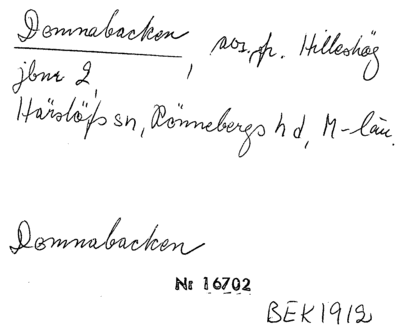 Domnabacken, ros. p. Hilleshög
jbnr 2,
Härslöfs sn, Rönnebergs hd, M-län.
Domnabacken
Nr 16702
BEK1912